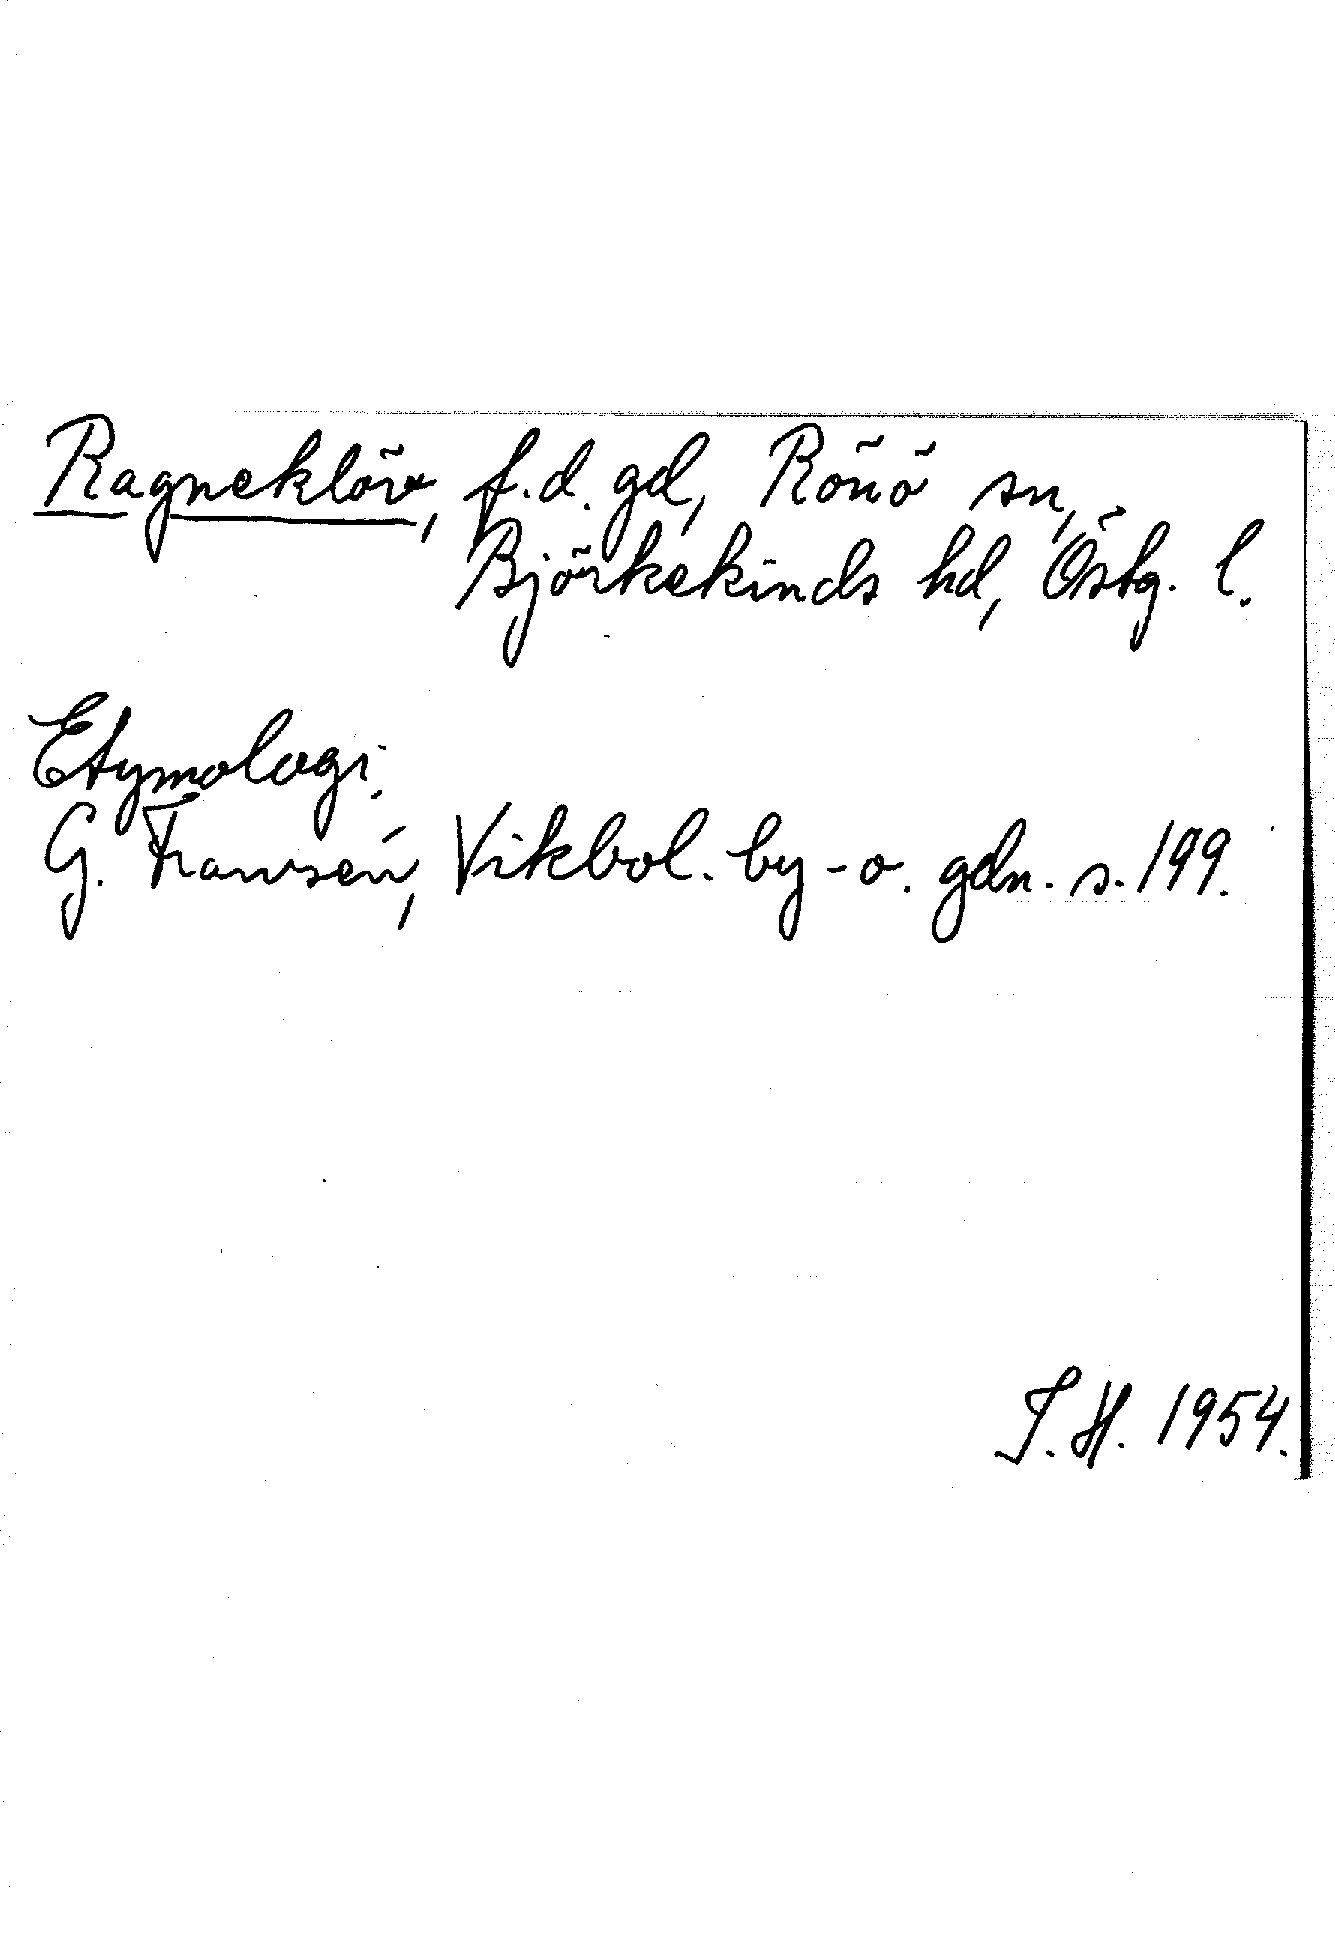 Ragneklöv, f.d. gd, Rönö sn,
Björkekinds hd, Östg. l.
Etymologi.
G. Fransén, Vikbol. by- o. gdn. s. 199.
T. H. 1954.